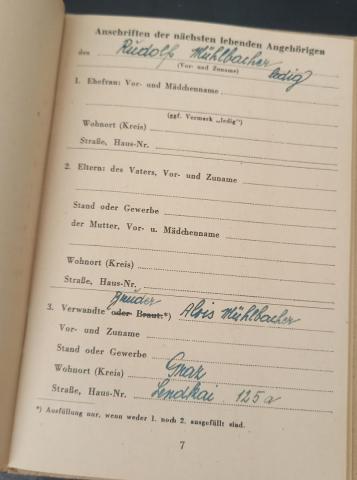 Anschriften der nächsten lebenden Angehörigen
des Rudolf Mühlbacher
(Vor- und Zuname) ledig
1. Ehefrau: Vor- und Mädchenname
(ggf. Vermerk „ledig")
Wohnort (Kreis)
Straße, Haus-Nr.
2. Eltern: des Vaters, Vor- und Zuname
Stand oder Gewerbe
der Mutter, Vor- u. Mädchenname
Wohnort (Kreis)
Straße, Haus-Nr.
Bruder
3. Verwandte oder Braut:*) Alois Mühlbacher
Vor- und Zuname
Stand oder Gewerbe
Wohnort (Kreis) Graz
Straße, Haus-Nr. Lendkai 125a
*) Ausfüllung nur, wenn weder 1. noch 2. ausgefüllt sind.
7